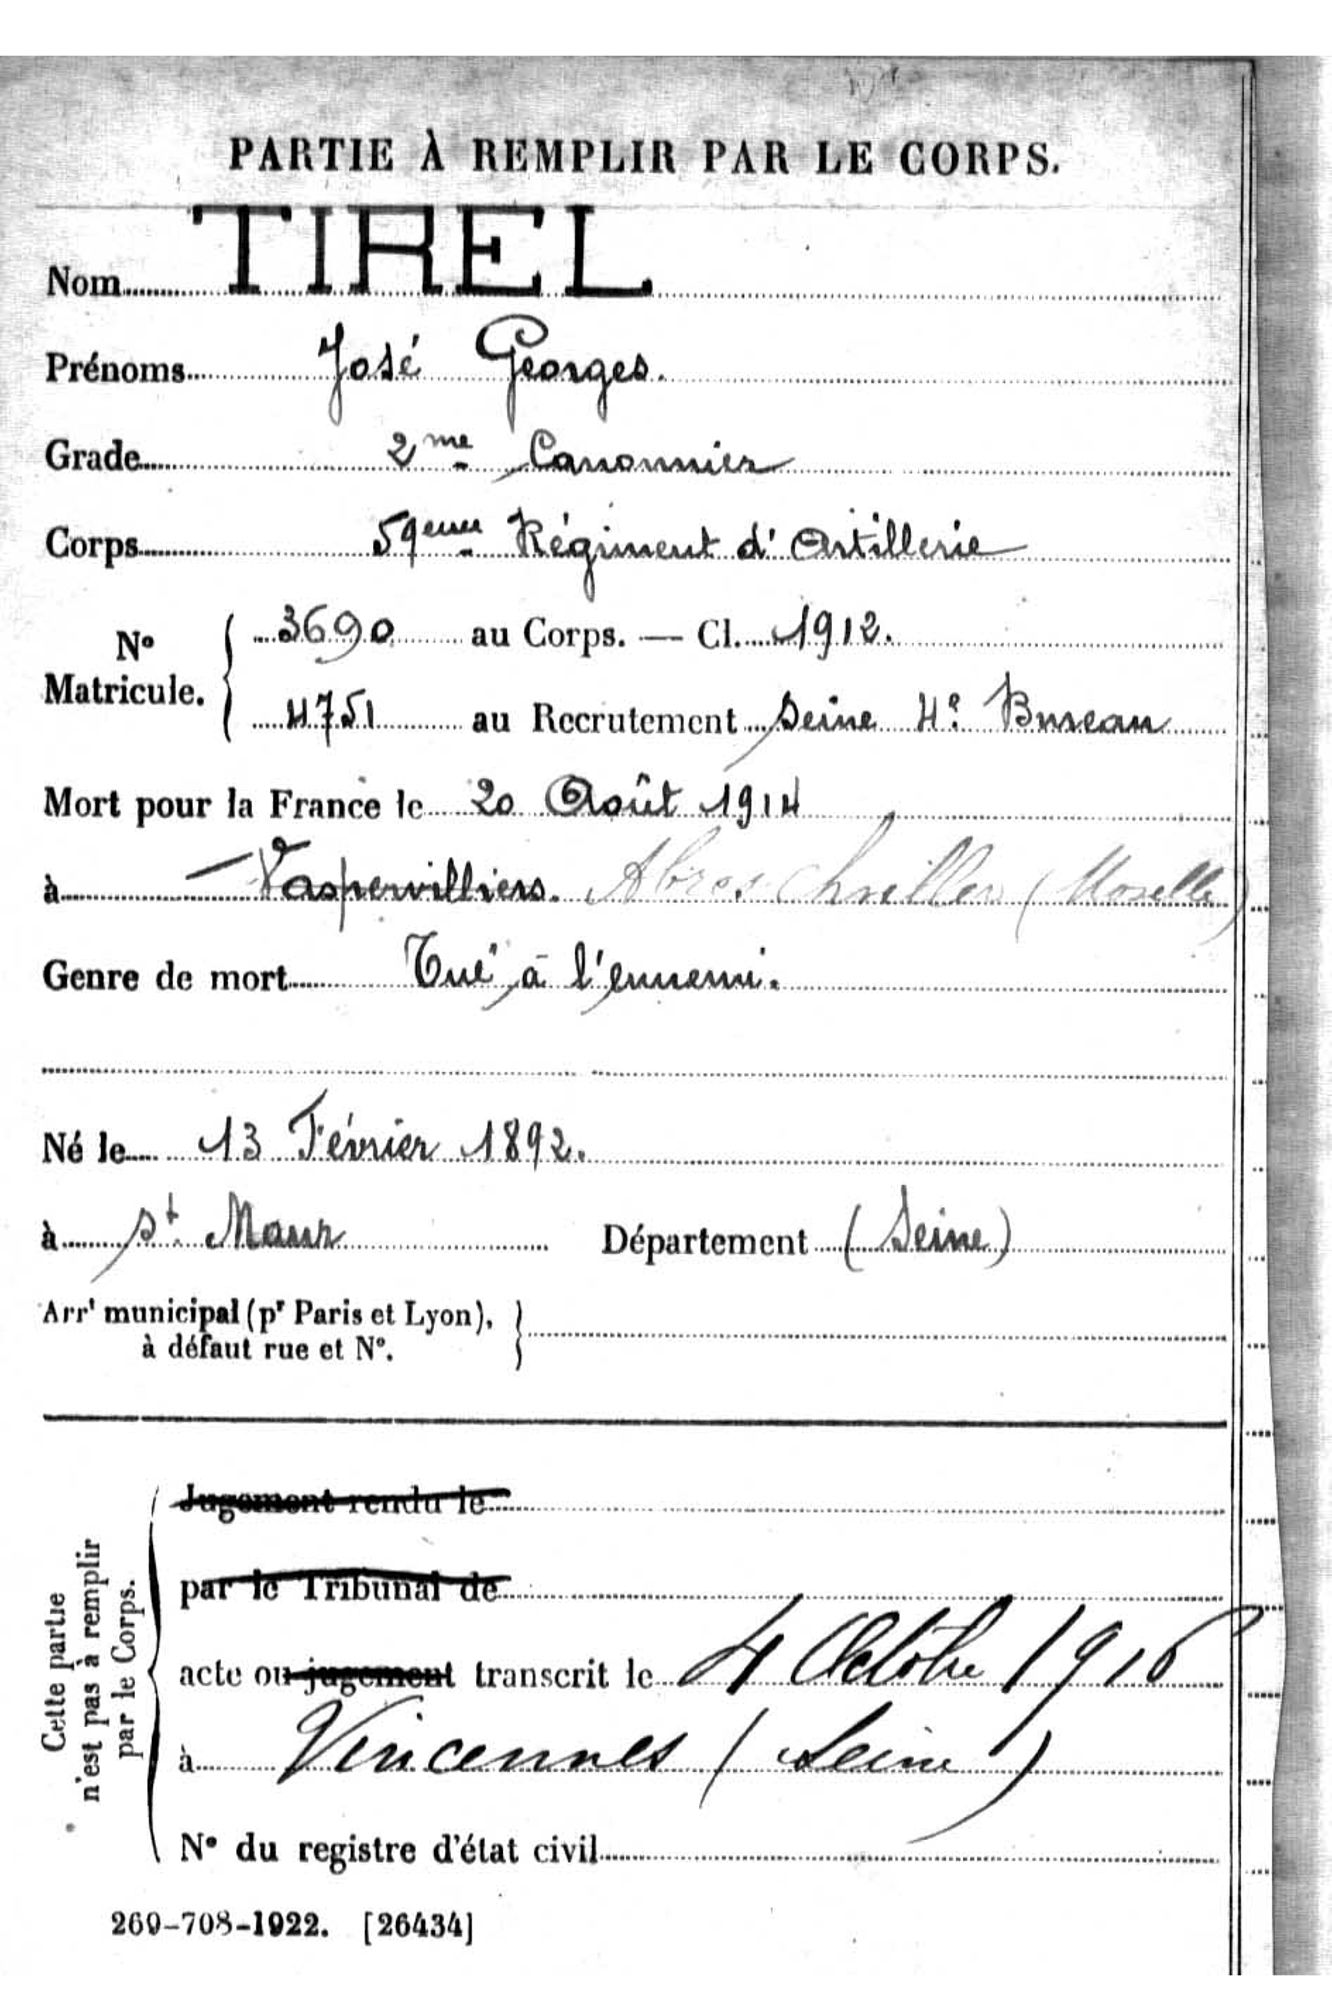 PARTIE À REMPLIR PAR LE CORPS.
Nom TIREL
Prénoms José Georges.
Grade 2me Canonnier
Corps 59eme Régiment d'Artillerie
No Matricule. { 3690 au Corps. — Cl. 1912.
4751 au Recrutement Seine 4e Bureau
Mort pour la France le 20 Août 1914
à Vaspervilliers. Abreschviller (Moselle)
Genre de mort Tué à l'ennemi.
Né le 13 Février 1892.
à St Maur Département (Seine)
Arrt municipal (pr Paris et Lyon), }
à défaut rue et No.
Cette partie n'est pas à remplir par le Corps.
Jugement rendu le
par le Tribunal de
acte ou jugement transcrit le 4 Octobre 1916
à Vincennes (Seine)
No du registre d'état civil
269-708-1922. [26434]